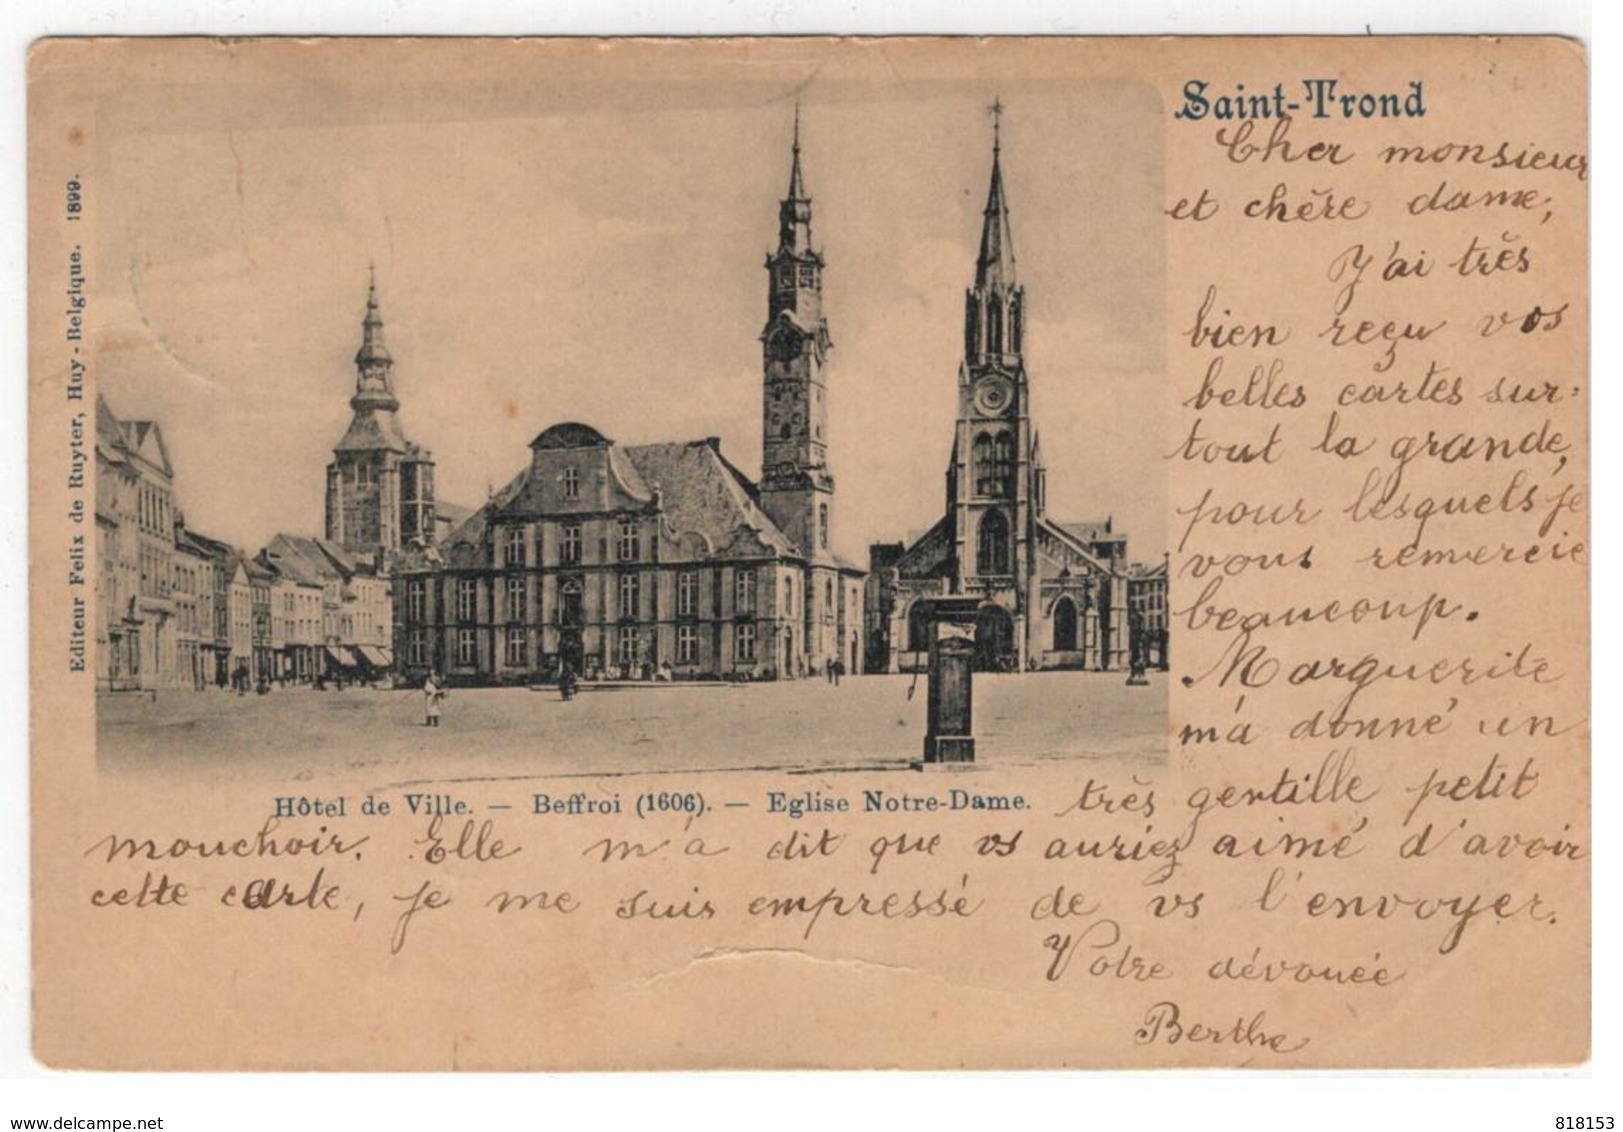 Saint-Trond
Cher monsieur
et chère dame,
J'ai très
bien reçu vos
belles cartes sur=
tout la grande,
pour lesquels je
vous remercie
beaucoup.
Marguerite
m'a donné un
très gentille petit
mouchoir. Elle m'a dit que vs auriez aimé d'avoir
cette carte, je me suis empressé de vs l'envoyer.
Votre dévouée
Berthe
Hôtel de Ville. — Beffroi (1606). — Eglise Notre-Dame.
Editeur Felix de Ruyter, Huy-Belgique. 1899.
www.delcampe.net
818153